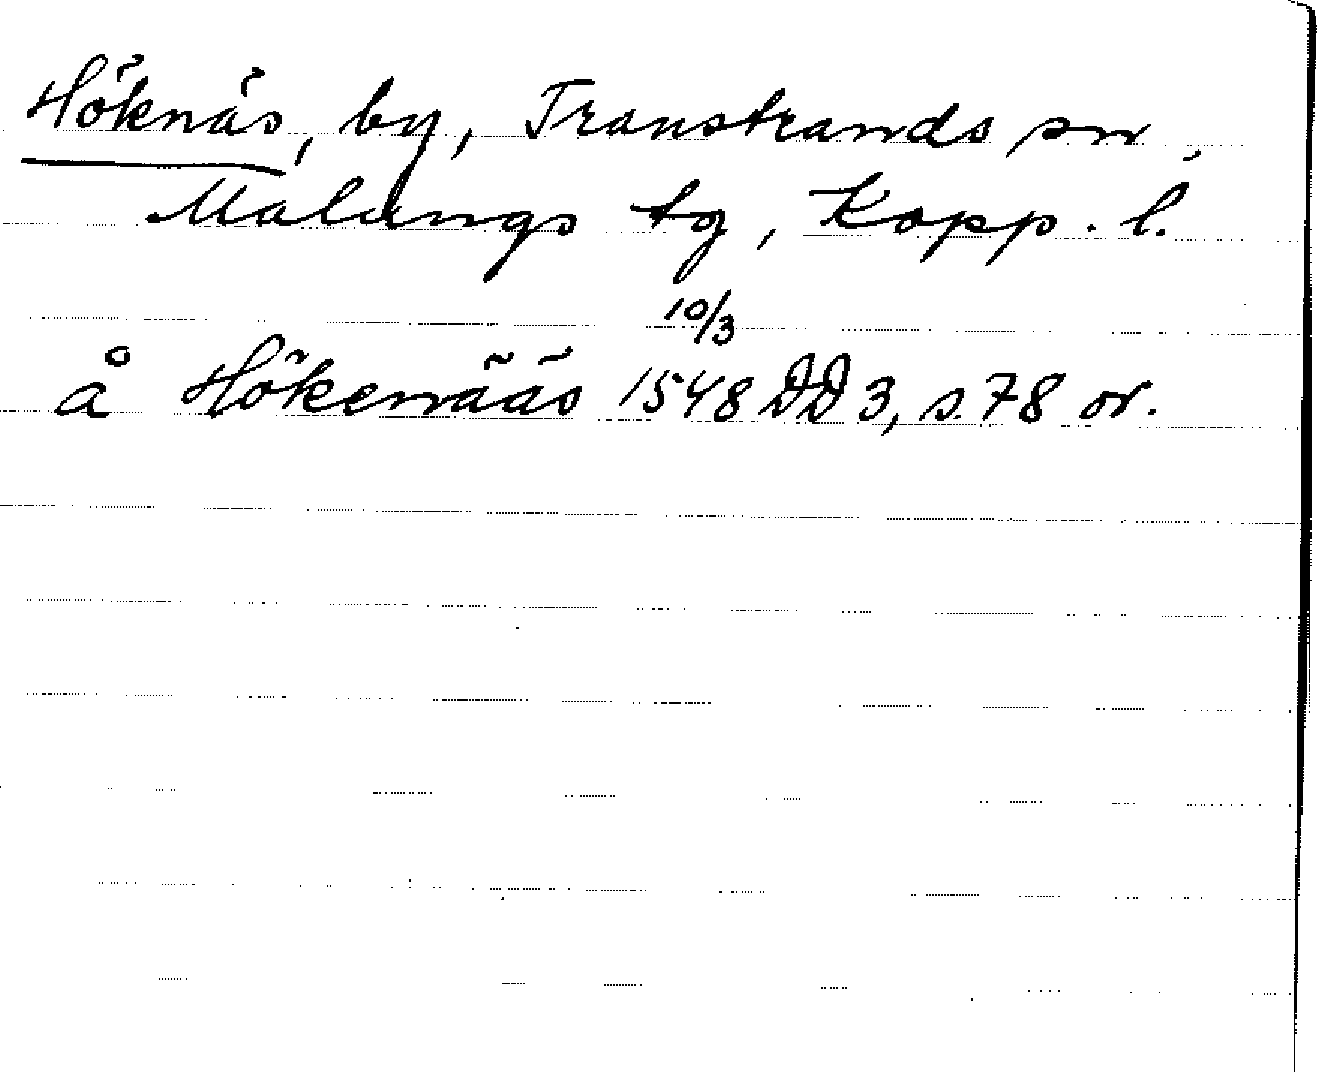 Höknäs, by, Transtrands sn,
Malungs tg, Kopp. l.
10/3
å Hökenääs 1548 DD 3, s. 78 or.